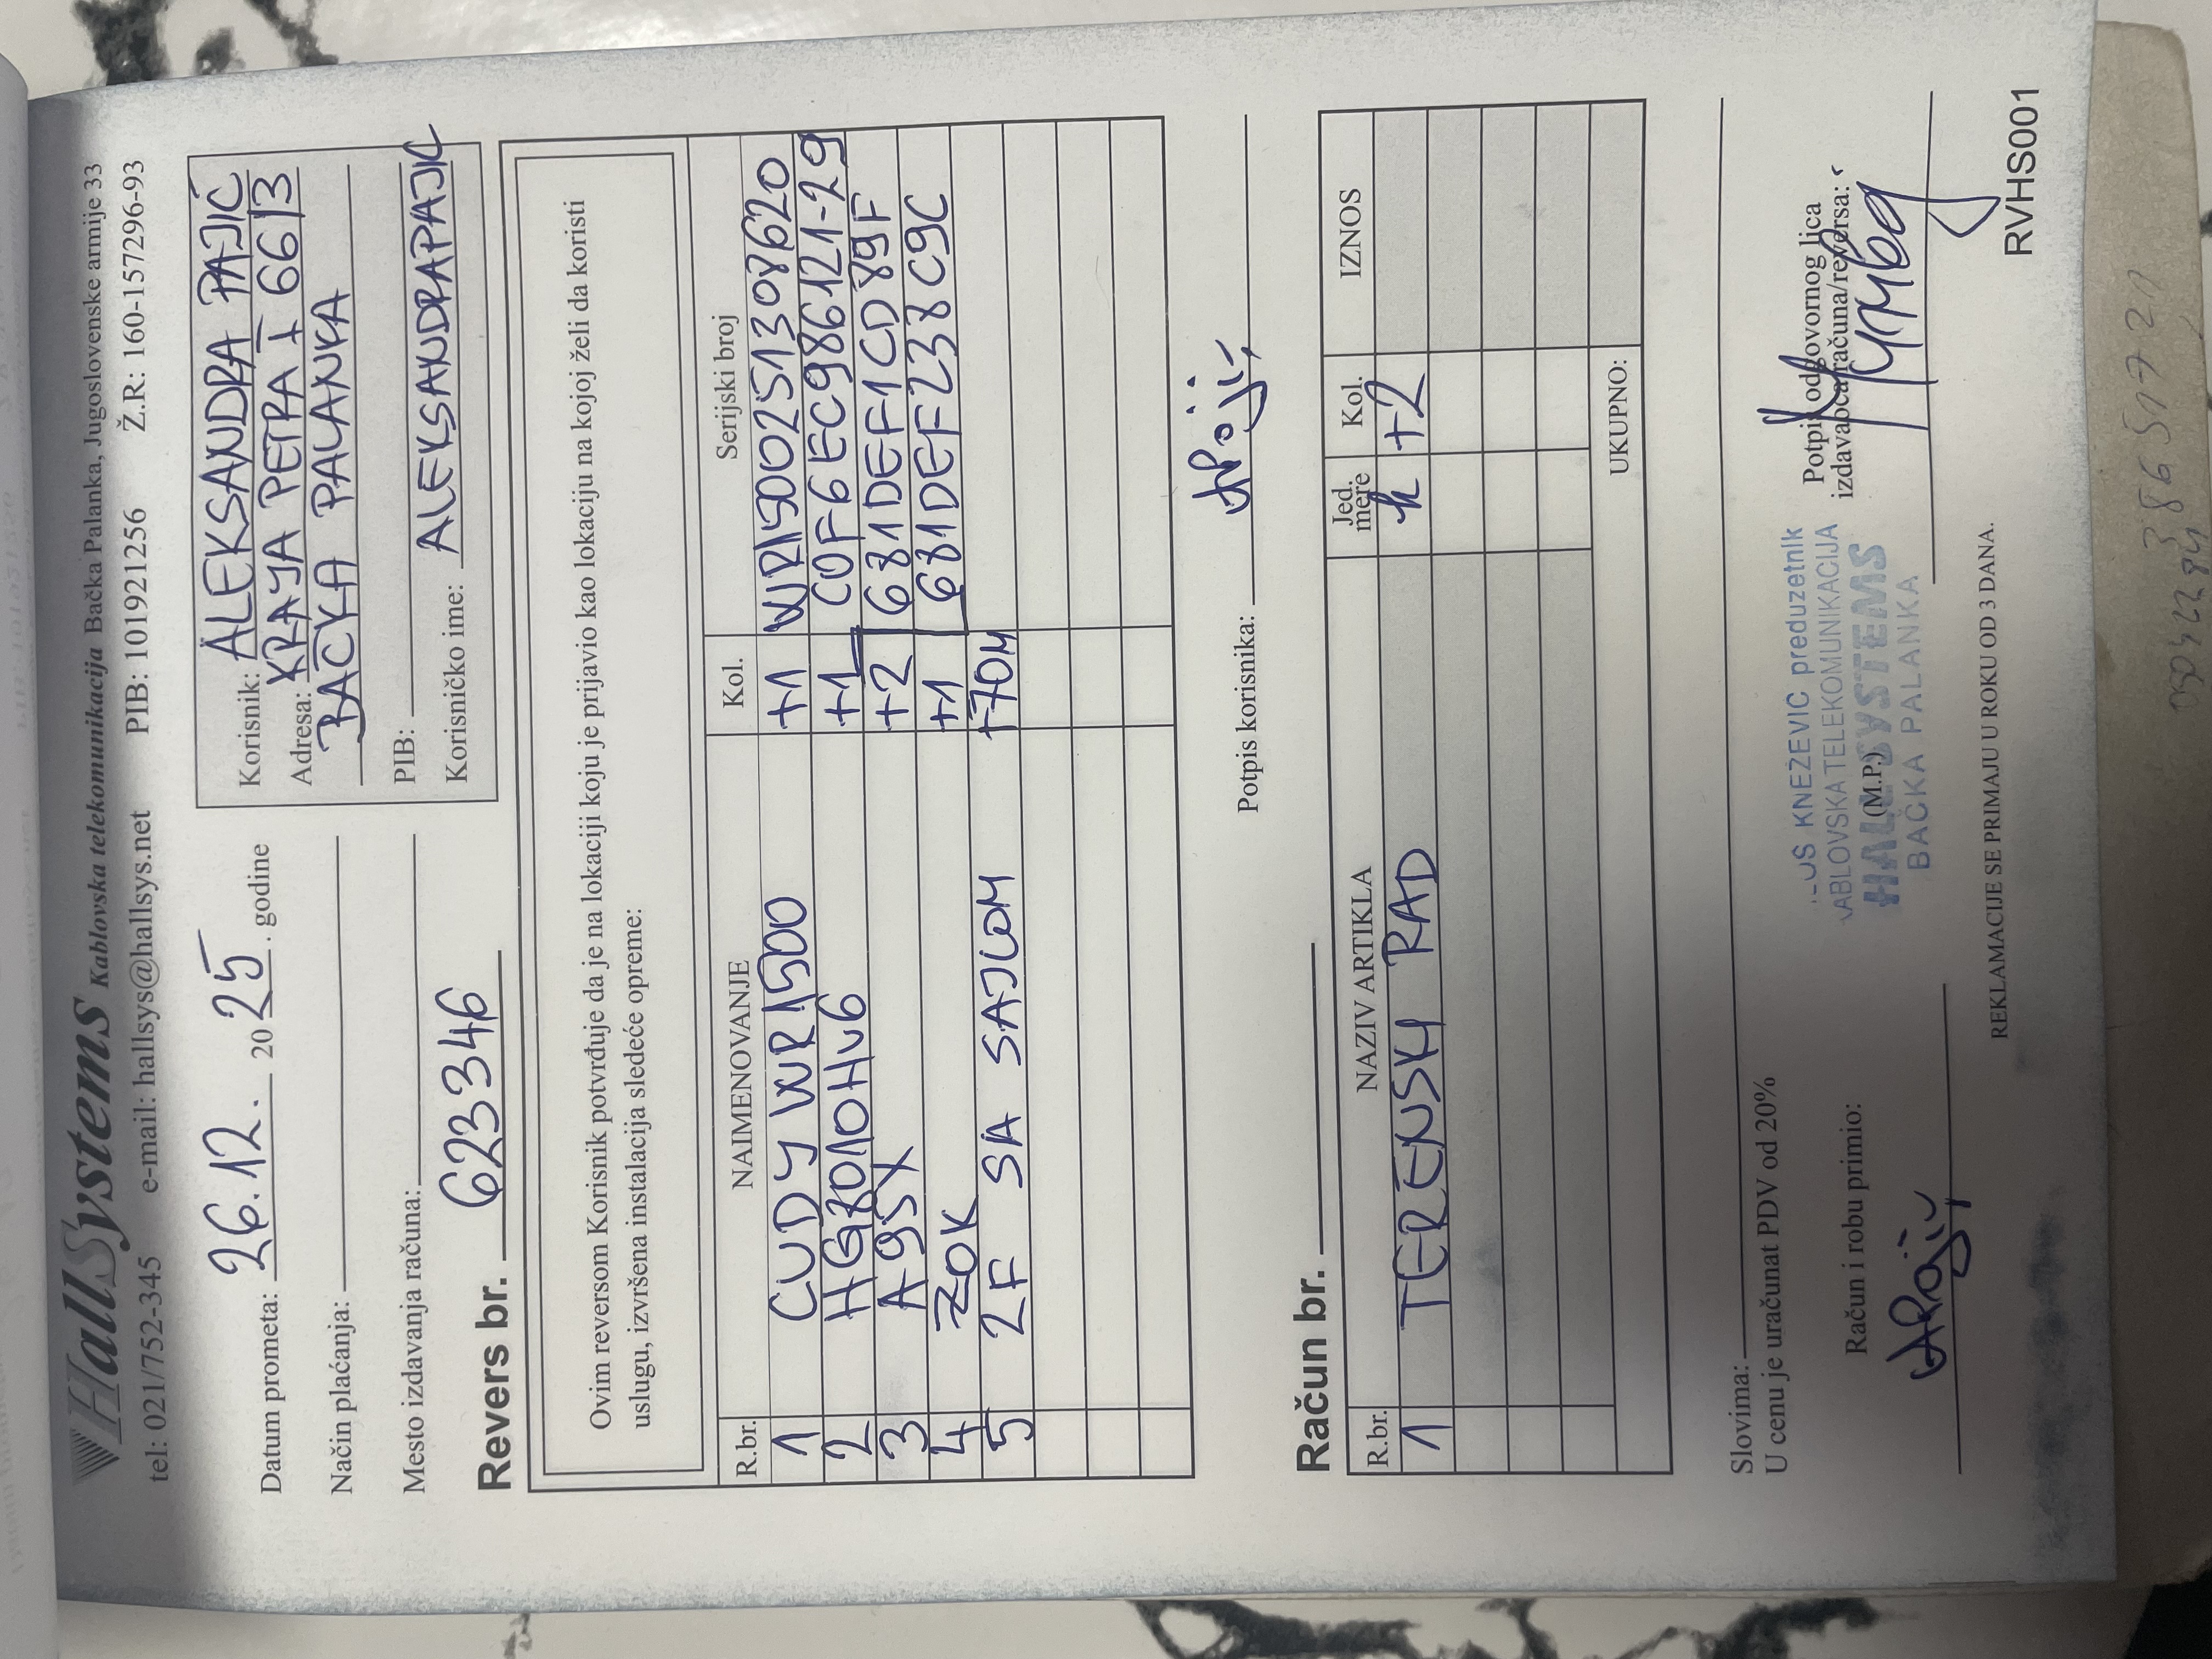 HallSystems Kablovska telekomunikacija Bačka Palanka, Jugoslovenske armije 33
tel: 021/752-345 e-mail: hallsys@hallsys.net PIB: 101921256 Ž.R: 160-157296-93
Datum prometa: 26.12. 2025. godine
Način plaćanja:
Mesto izdavanja računa:
Korisnik: ALEKSANDRA PAJIĆ
Adresa: KRALJA PETRA I 66/3
BAČKA PALANKA
PIB:
Korisničko ime: ALEKSANDRAPAJIC
Revers br. 623346
Ovim reversom Korisnik potvrđuje da je na lokaciji koju je prijavio kao lokaciju na kojoj želi da koristi
uslugu, izvršena instalacija sledeće opreme:
R.br. NAIMENOVANJE Kol. Serijski broj
1 CUDY WR1500 +1 WR15002513087620
2 HG8010Hv6 +1 C0F6EC986121-29
3 A95X +2 681DEF1CD89F
4 ZOK +1 681DEF238C9C
5 2F SA SAJLOM +70M
Potpis korisnika:
Račun br.
R.br. NAZIV ARTIKLA Jed. mere Kol. IZNOS
1 TERENSKI RAD h +2
UKUPNO:
Slovima:
U cenu je uračunat PDV od 20%
Račun i robu primio:
KNEŽEVIĆ preduzetnik
KABLOVSKA TELEKOMUNIKACIJA
HALL SYSTEMS
(M.P.)
BAČKA PALANKA
Potpis odgovornog lica
izdavaoca računa/reversa:
REKLAMACIJE SE PRIMAJU U ROKU OD 3 DANA.
RVHS001